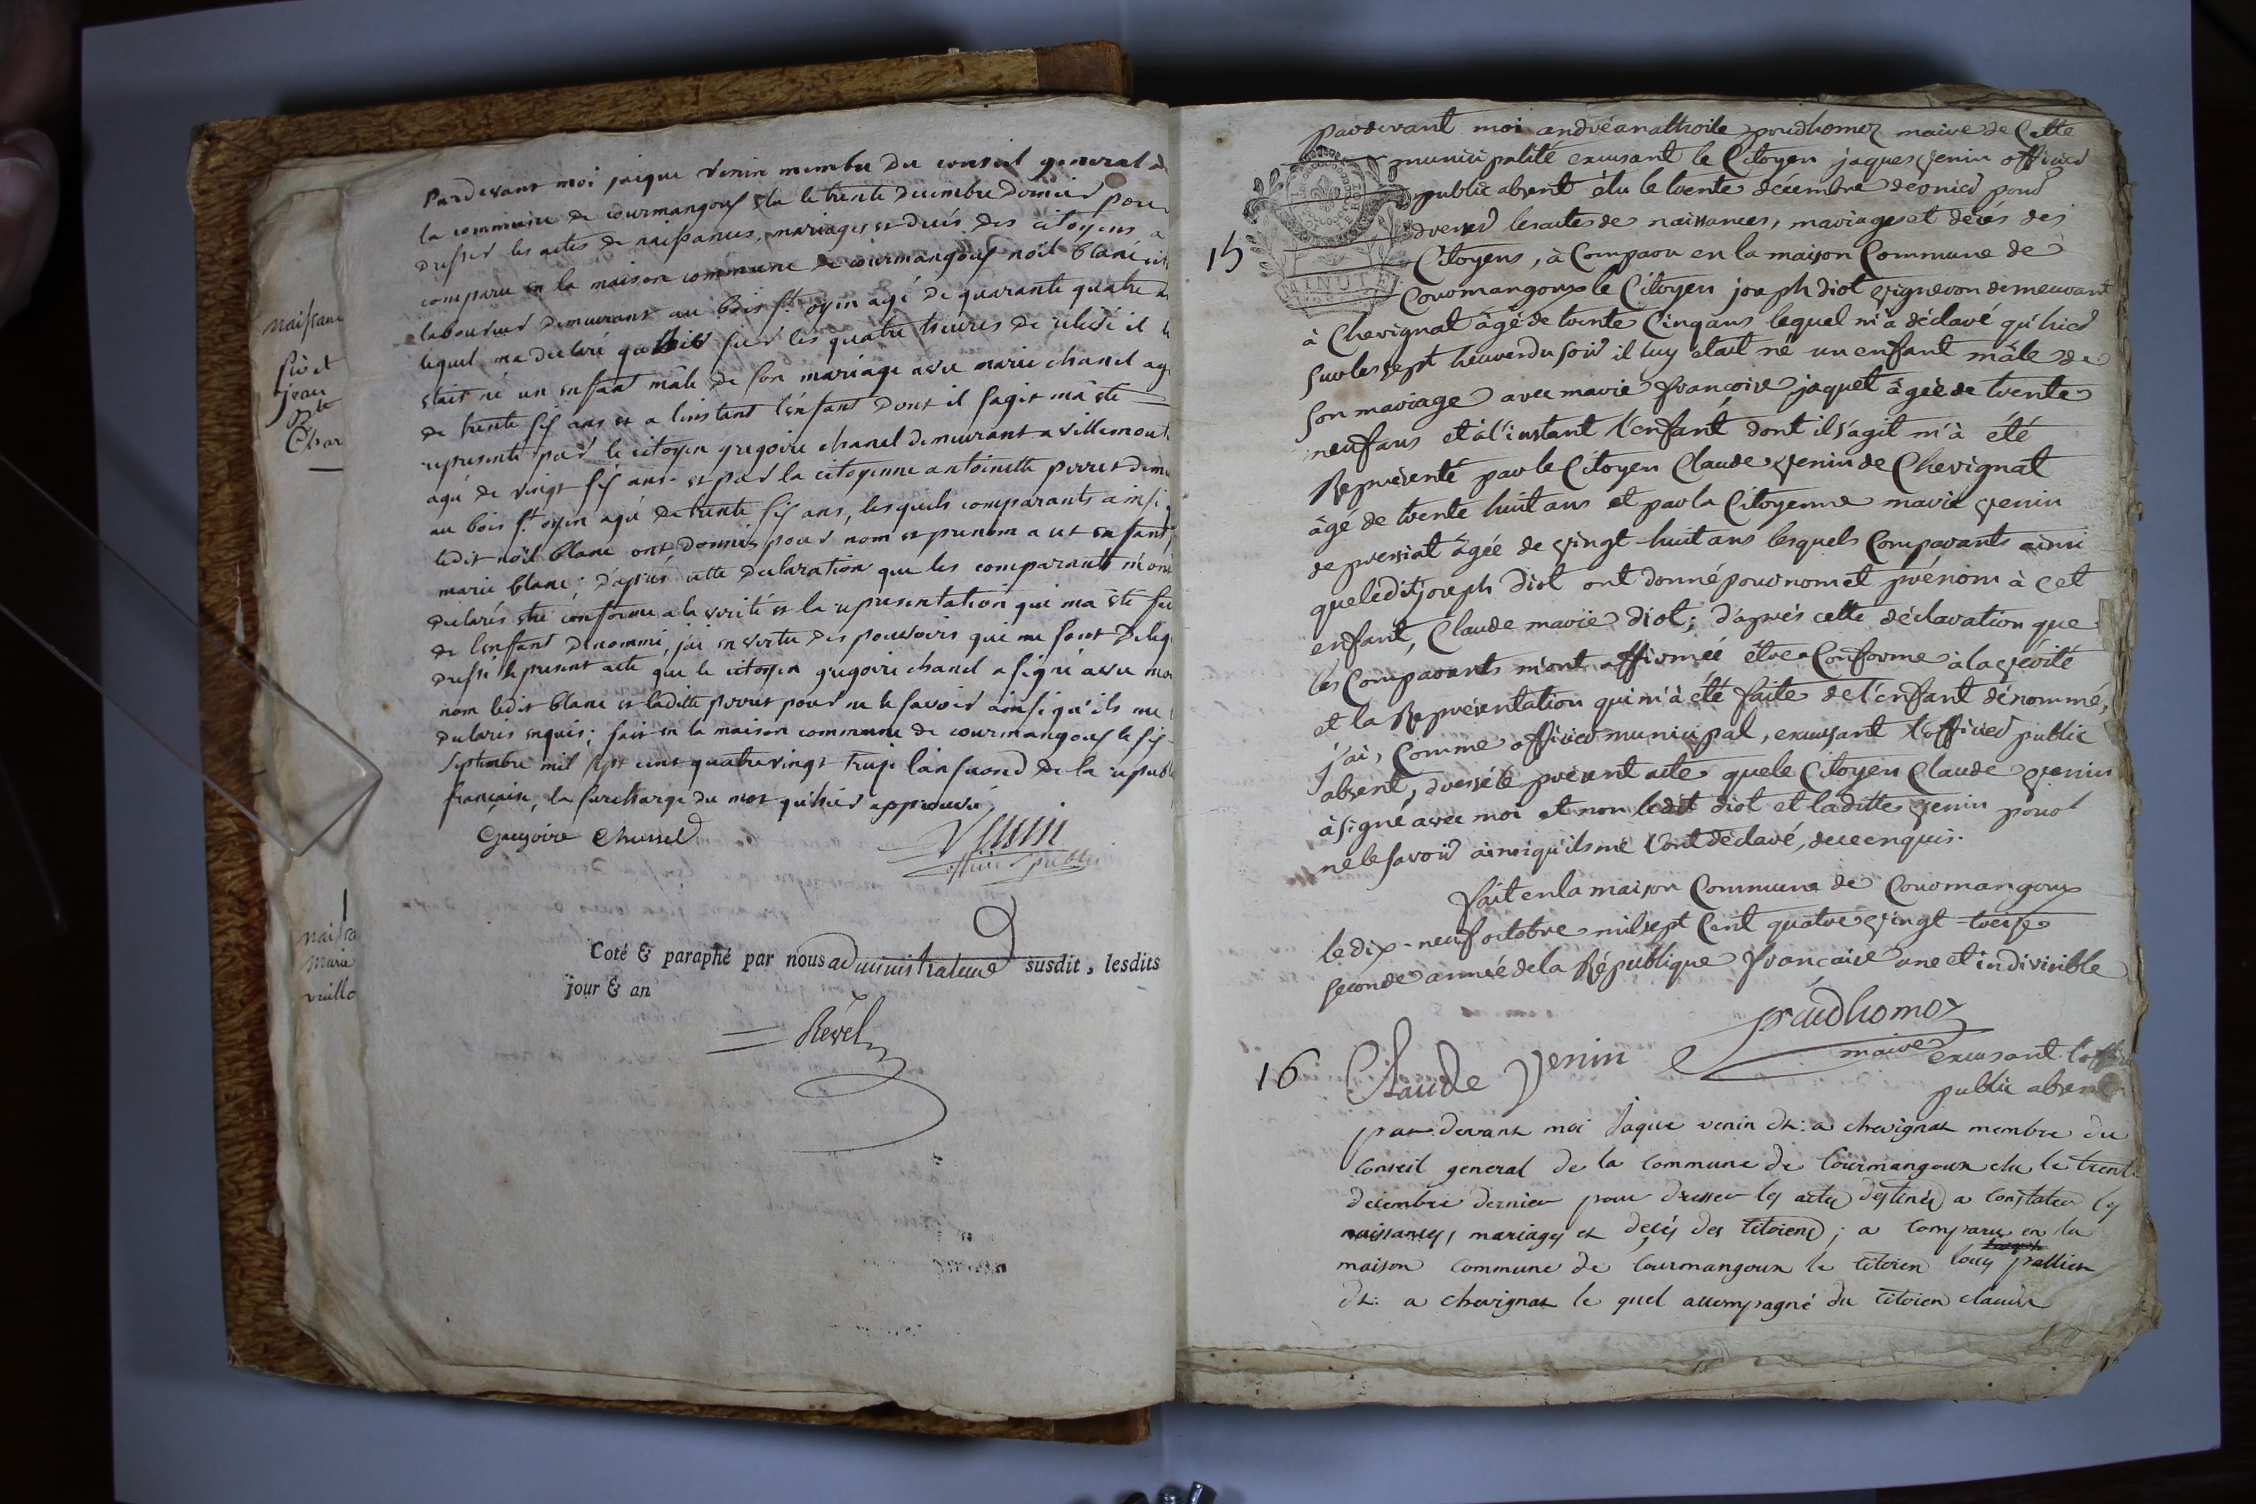 naissanc
pié et
jean
Bte
Char
naissa
marie
vuillo
Pardevant moi jaique venin membre du conseil general de
la commune de courmangoux elu le trente decembre dernier pour
dresser les actes de naissances, mariages et decés des citoyens a
comparu en la maison commune de courmangoux noël blanc cit
laboureur demeurant au bois st oyin agé de quarante quatre a
lequel ma declaré qu'hier sur les quatre heures de relevé il l
etait né un enfant mâle de son mariage avec marie chanel ag
de trente six ans et a linstant l'enfant dont il sagit ma été
representé par le citoyen gregoire chanel demeurant a villemout
agé de vingt six ans et par la citoyenne antoinette perret deme
au bois st oyin agée de trente six ans, lesquels comparants ainsi q
ledit noël blanc ont donnés pour nom et prenom a cet enfant
marie blanc; d'après cette declaration que les comparants m'ont
declarés etre conforme a la verité et la representation qui ma été fai
de l'enfant denommé, j'ai en vertu des pouvoirs qui me sont delegu
dressé le present acte que le citoyen gregoire chanel a signé avec moi
non ledit blanc et ladite perret pour ne le savoir ainsi qu'ils me
declarés enquis; fait en la maison commune de courmangoux le six
septembre mil sept cent quatrevingt treize l'an second de la republ
française, la surcharge du mot qu'hier approuvé
Gregoire Chanel
Venin
officier public
Coté & paraphé par nous administrateur susdit, lesdits
jour & an
Revel
15
MINUTE
pardevant moi andré anathoile prudhomoz maire de Cette
municipalité excusant le Citoyen jaques venin officier
public absent élu le trente décembre dernier pour
dresser les actes de naissances, mariages et décés des
Citoyens, à Comparu en la maison Commune de
Courmangoux le Citoyen joseph diot vigneron demeurant
à Chevignat âgé de trente Cinq ans lequel m'a déclaré qu'hier
sur les sept heures du soir il luy etait né un enfant mâle de
son mariage avec marie françoise jaquet âgée de trente
neuf ans et à l'instant l'enfant dont il s'agit m'à été
Représenté par le Citoyen Claude venin de Chevignat
âgé de trente huit ans et par la Citoyenne marie venin
de pressiat âgée de vingt-huit ans lesquels Comparants ainsi
que ledit joseph diot ont donné pour nom et prénom à cet
enfant, Claude marie diot; d'après cette déclaration que
les Comparants m'ont affirmée être Conforme à la vérité
et la Représentation qui m'à été faite de l'enfant dénommé,
j'ai, Comme officier municipal, excusant l'officier public
absent, dressé le présent acte que le Citoyen Claude venin
à signé avec moi et non ledit diot et laditte venin pour
ne le savoir ainsi qu'ils me l'ont déclaré, de ce enquis.
fait en la maison Commune de Courmangoux
le dix-neuf octobre mil sept Cent quatre vingt-treise
seconde année de la République française une et indivisible
prudhomoz
maire excusant l'officier
public absent
Claude Venin
16
par devant moi Jaque venin dt: a chevignat membre du
Conseil general de la Commune de Courmangoux elu le trente
decembre dernier pour dresser les actes destinés a Constater les
naissances, mariages et decés des Citoiens; a Comparu en la
maison Commune de Courmangoux le Citoien louis pallien
dt: a chevignat le quel accompagné du Citoien claude